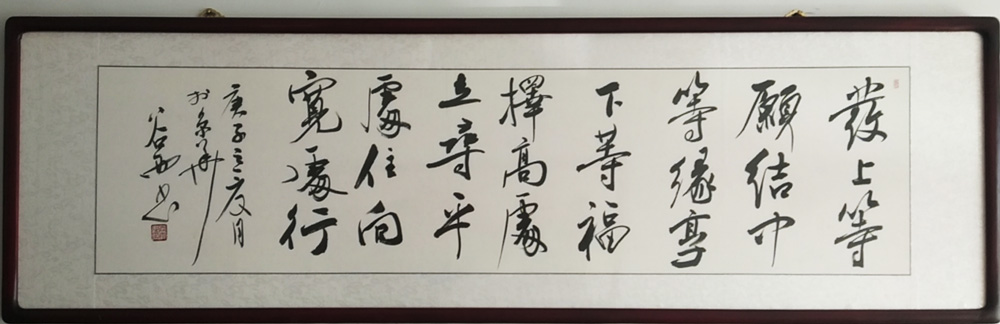 發上等
願結中
等緣享
下等福
擇高處
立尋平
處住向
寬處行
庚子之夏月
於京華
谷西書